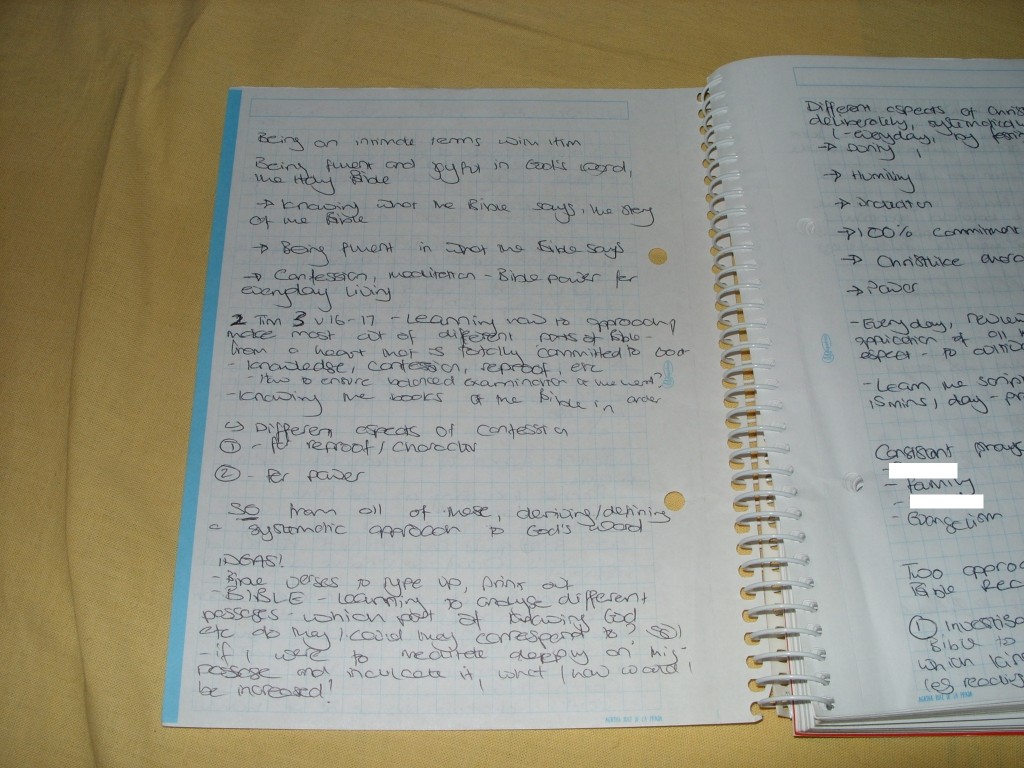 Being on intimate terms with Him
Being fluent and joyful in God's word,
the Holy Bible
→ Knowing what the Bible says, the story
of the Bible
→ Being fluent in what the Bible says
→ Confession, meditation - Bible power for
everyday living
2 Tim 3 v16-17 - Learning how to approach/
make most out of different parts of Bible -
from a heart that is totally committed to God
- knowledge, confession, reproof, etc
- How to ensure balanced examination of the heart?
- Knowing the books of the Bible in order
↳ Different aspects of Confession
① - for reproof / character
② - For power
SO from all of these, deriving/defining
a systematic approach to God's word
IDEAS!
- Bible verses to type up, print out
- BIBLE - Learning to analyse different
passages - which part of knowing God
etc do they / could they correspond to?
- if I were to meditate deeply on this
passage and inculcate it, what / how would I
be increased!
Different aspects of
deliberately,
(-everyday,
→
→ Humility
→
→ 100% commitment
→ Christlike
→ Power
- Everyday,
application of all
aspect - to
- Learn the
15mins, day -
Consistent
- Family
-
- Evangelism
Two
Bible
①
Bible to
which
(eg,